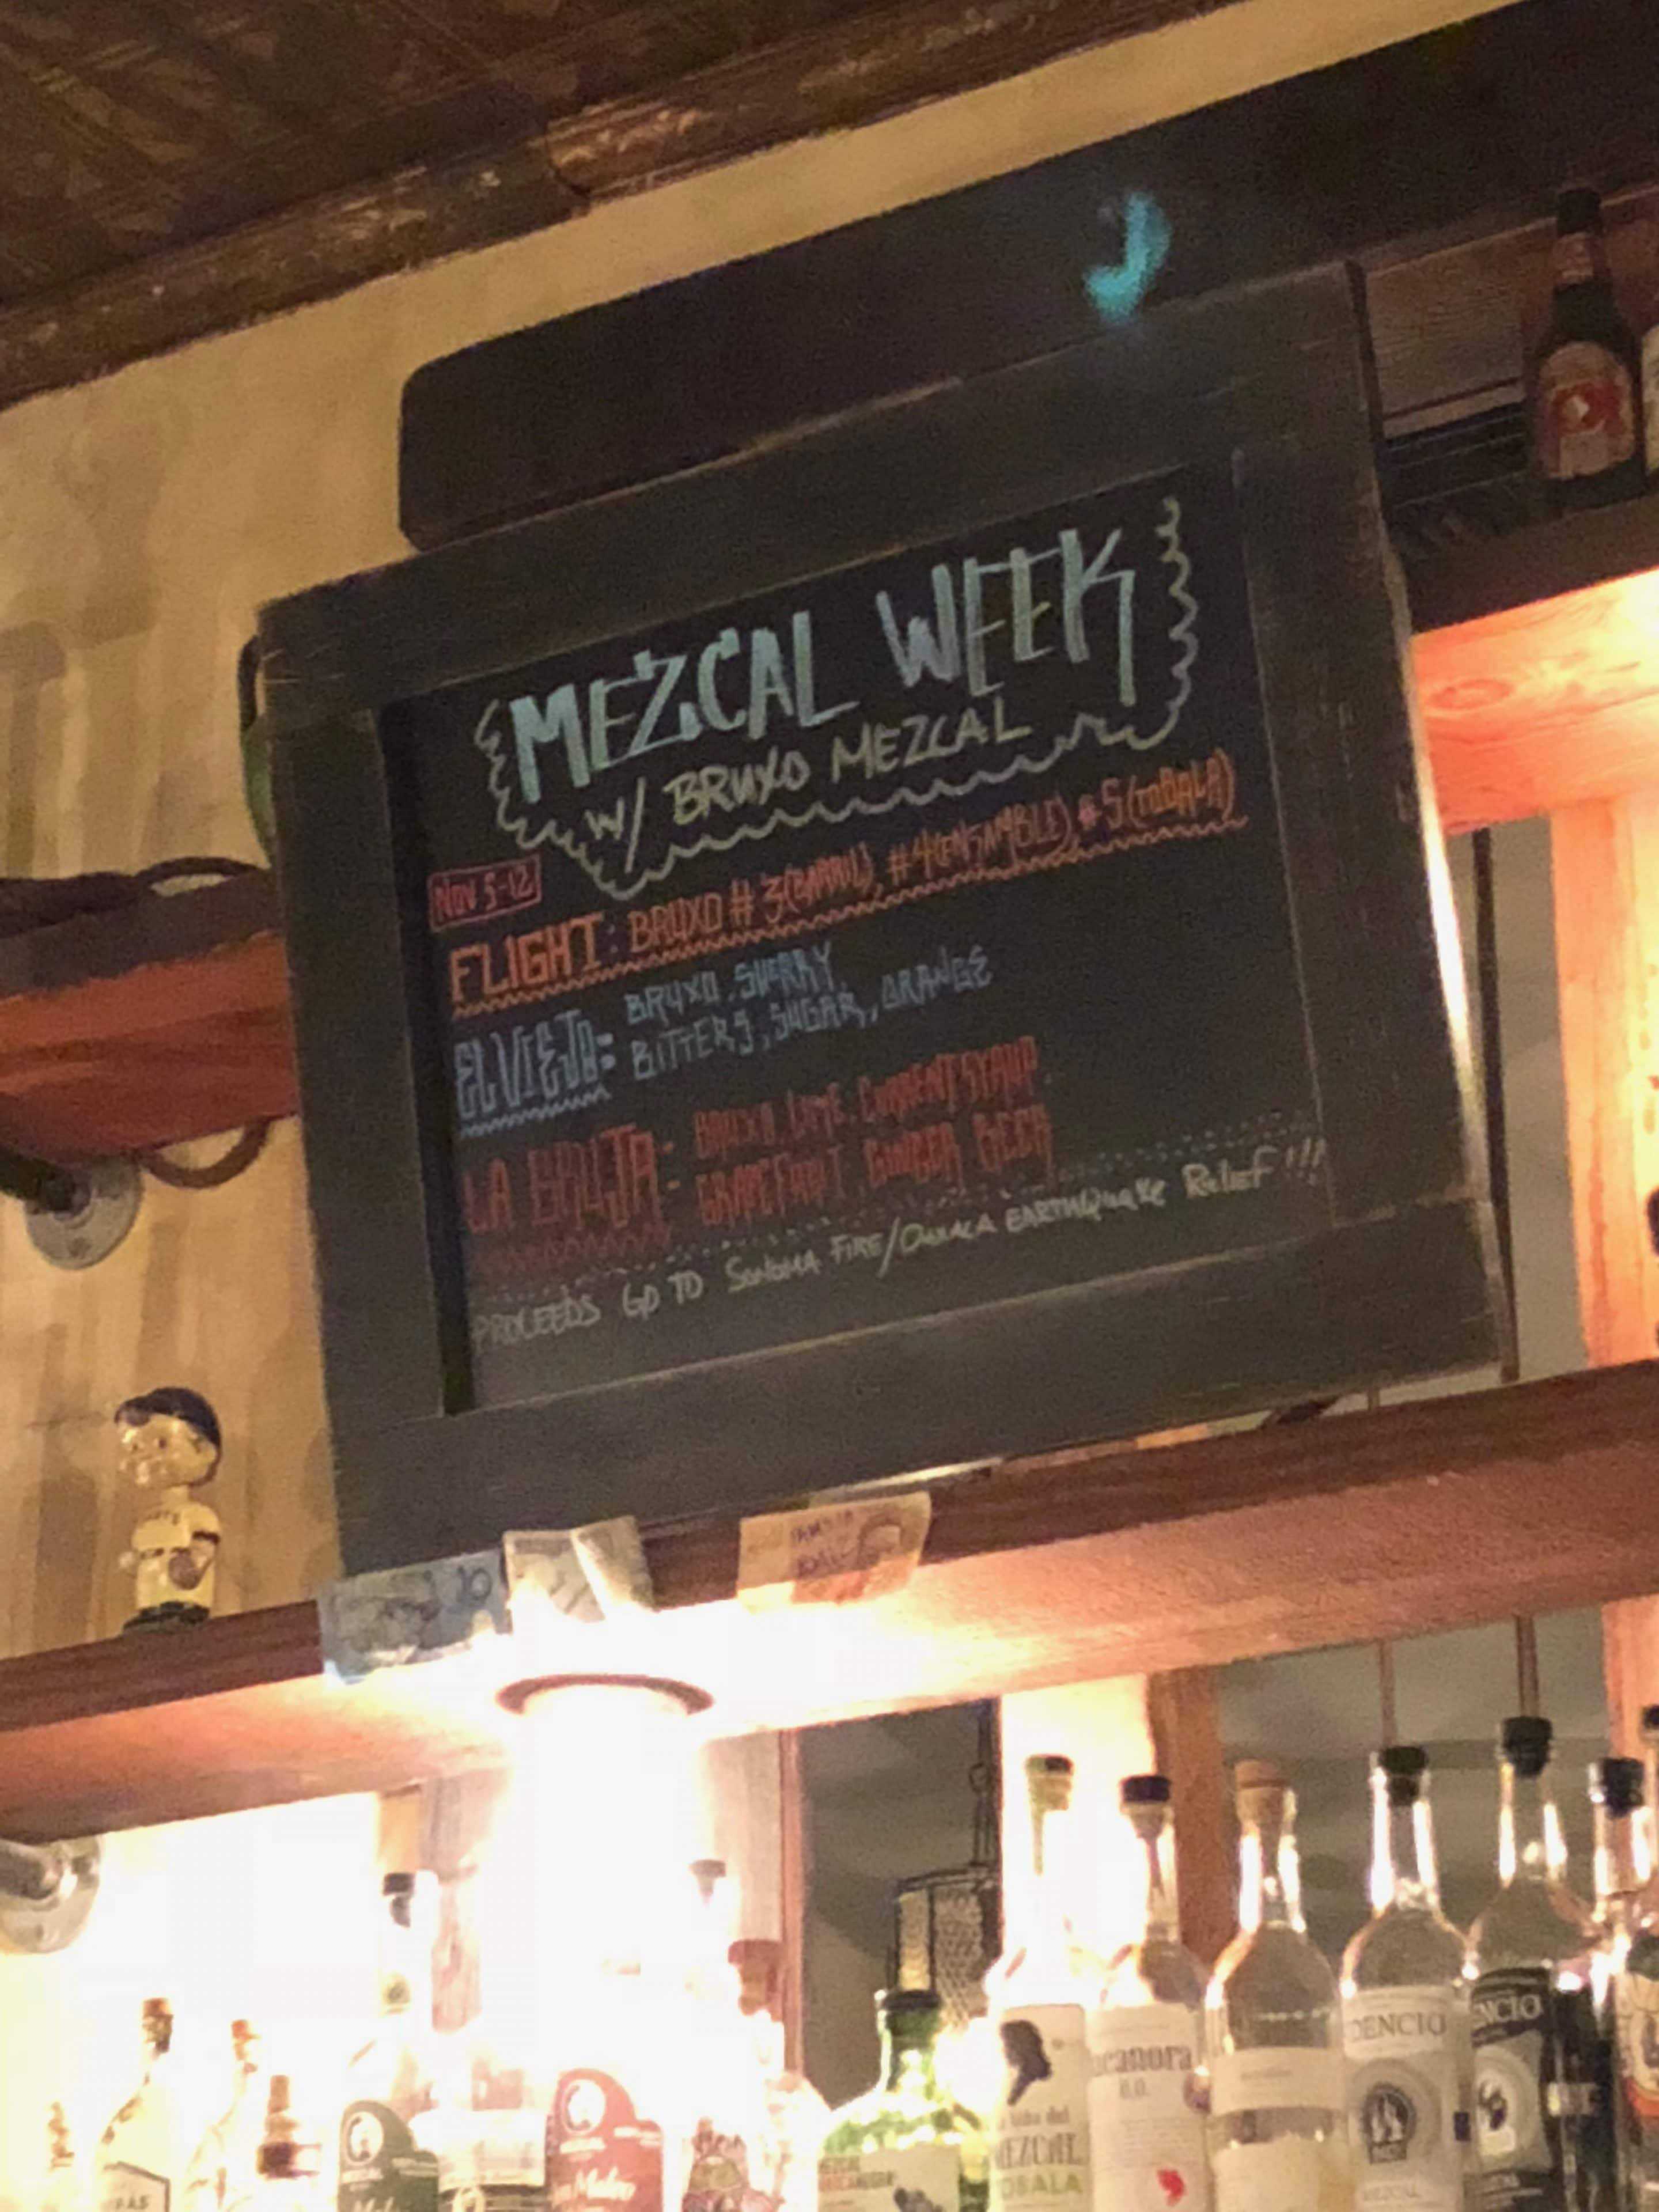 MEZCAL WEEK
W/ BRUXO MEZCAL
NOV 5-12
FLIGHT: BRUXO # 3(BARRIL), #4(ENSAMBLE), # 5(TOBALA)
EL VIEJO: BRUXO, SHERRY,
BITTERS, SUGAR, ORANGE
LA BRUJA- BRUXO, LIME, CURRENT SYRUP,
GRAPEFRUIT, GINGER BEER
PROCEEDS GO TO SONOMA FIRE/OAXACA EARTHQUAKE RELIEF!!!
20
MEZCAL
TOBALA
D.O.
DENCIO
MEZCAL
NCIO